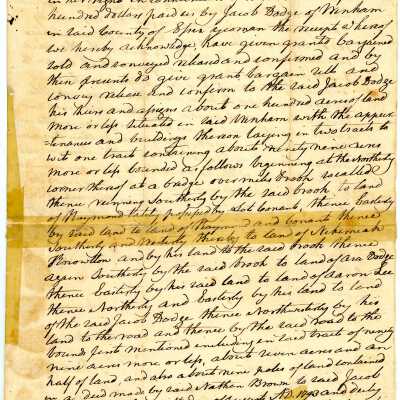 hundred dollars paid us by Jacob Dodge of Wenham
in said County of Essex yeoman the receipt whereof
we hereby acknowledge, have given granted bargained
sold and conveyed released and confirmed and by
these presents do give grant bargain sell and
convey release and confirm to the said Jacob Dodge
his heirs and assigns about one hundred acres of land
more or less situated in said Wenham with the appur
tenances and buildings thereon laying in two tracts to
wit one tract containing about ninety nine acres
more or less bounded as follows beginning at the Northerly
corner thereof at a bridge over miles brook so called
thence running Southerly by the said brook to land
of Raymond lately possessed by Conant, thence Easterly
by said land to land of Raymond and Conant thence
Southerly and Westerly thereby to land of Nehemiah
Knowlton and by his land to the said brook thence
again Southerly by the said brook to land of Asa Dodge
thence Easterly by his said land to land of Aaron Lee
thence Northerly and Easterly by his land to land
of the said Jacob Dodge thence Northwesterly by his
land to the road and thence by the said road to the
bounds first mentioned including in said tract of ninety
nine acres more or less, about seven acres and an
half of land, and also about nine poles of land contained
in a deed made by said Nathan Brown to said Jacob
A.D. 1793 and duly